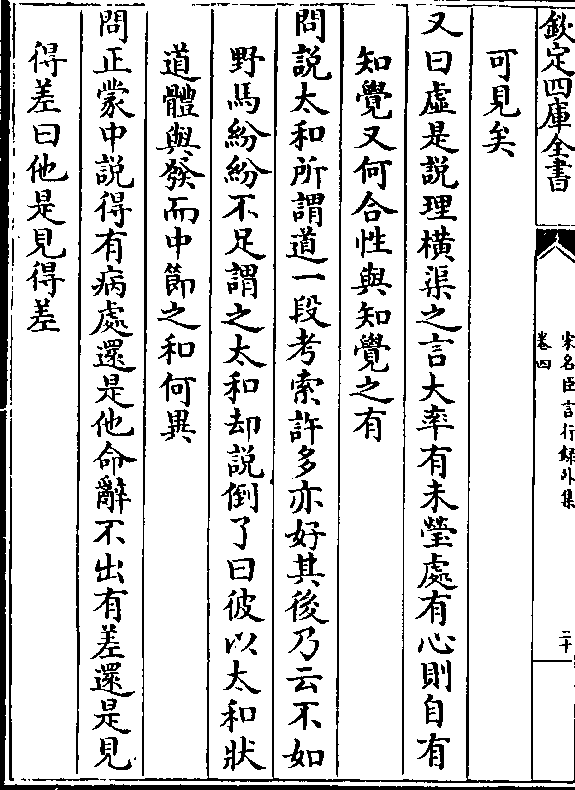 欽定四庫全書
宋名臣言行録外集
卷四
二十
可見矣
又曰虛是説理横渠之言大率有未瑩處有心則自有
知覺又何合性與知覺之有
問説太和所謂道一段考索許多亦好其後乃云不如
野馬紛紛不足謂之太和却説倒了曰彼以太和狀
道體與發而中節之和何異
問正蒙中説得有病處還是他命辭不出有差還是見
得差曰他是見得差